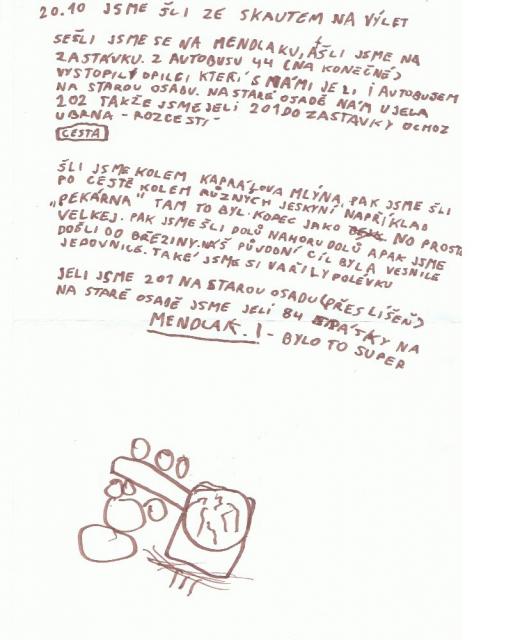 20.10 JSME ŠLI ZE SKAUTEM NA VÝLET
SEŠLI JSME SE NA MENDLAKU, A ŠLI JSME NA
ZASTÁVKU. Z AUTOBUSU 44 (NA KONEČNÉ)
VYSTOPILY OPILCI KTEŘÍ S NÁMI JELI I AUTOBUJEM
NA STAROU OSADU. NA STARÉ OSADĚ NÁM UJELA
202 TAKŽE JSME JELI 201 DO ZASTÁVKY OCHOZ
U BRNA - ROZCESTÍ-
CESTA
ŠLI JSME KOLEM KAPRÁLOVA MLÝNA. PAK JSME ŠLI
PO CESTĚ KOLEM RŮZNÝCH JESKYNÍ NAPŘÍKLAD
„PEKÁRNA" TAM TO BYL KOPEC JAKO NO PROSTĚ
VELKEJ. PAK JSME ŠLI DOLŮ NAHORU DOLŮ A PAK JSME
DOŠLI DO BŘEZINY. NÁŠ PŮVODNÍ CÍL BYLA VESNICE
JEDOVNICE. TAKÉ JSME SI VAŘILY POLÉVKU
JELI JSME 201 NA STAROU OSADU (PŘES LÍŠEŇ)
NA STARÉ OSADĚ JSME JELI 84 ZPÁTKY NA
MENDLAK. ! - BYLO TO SUPER